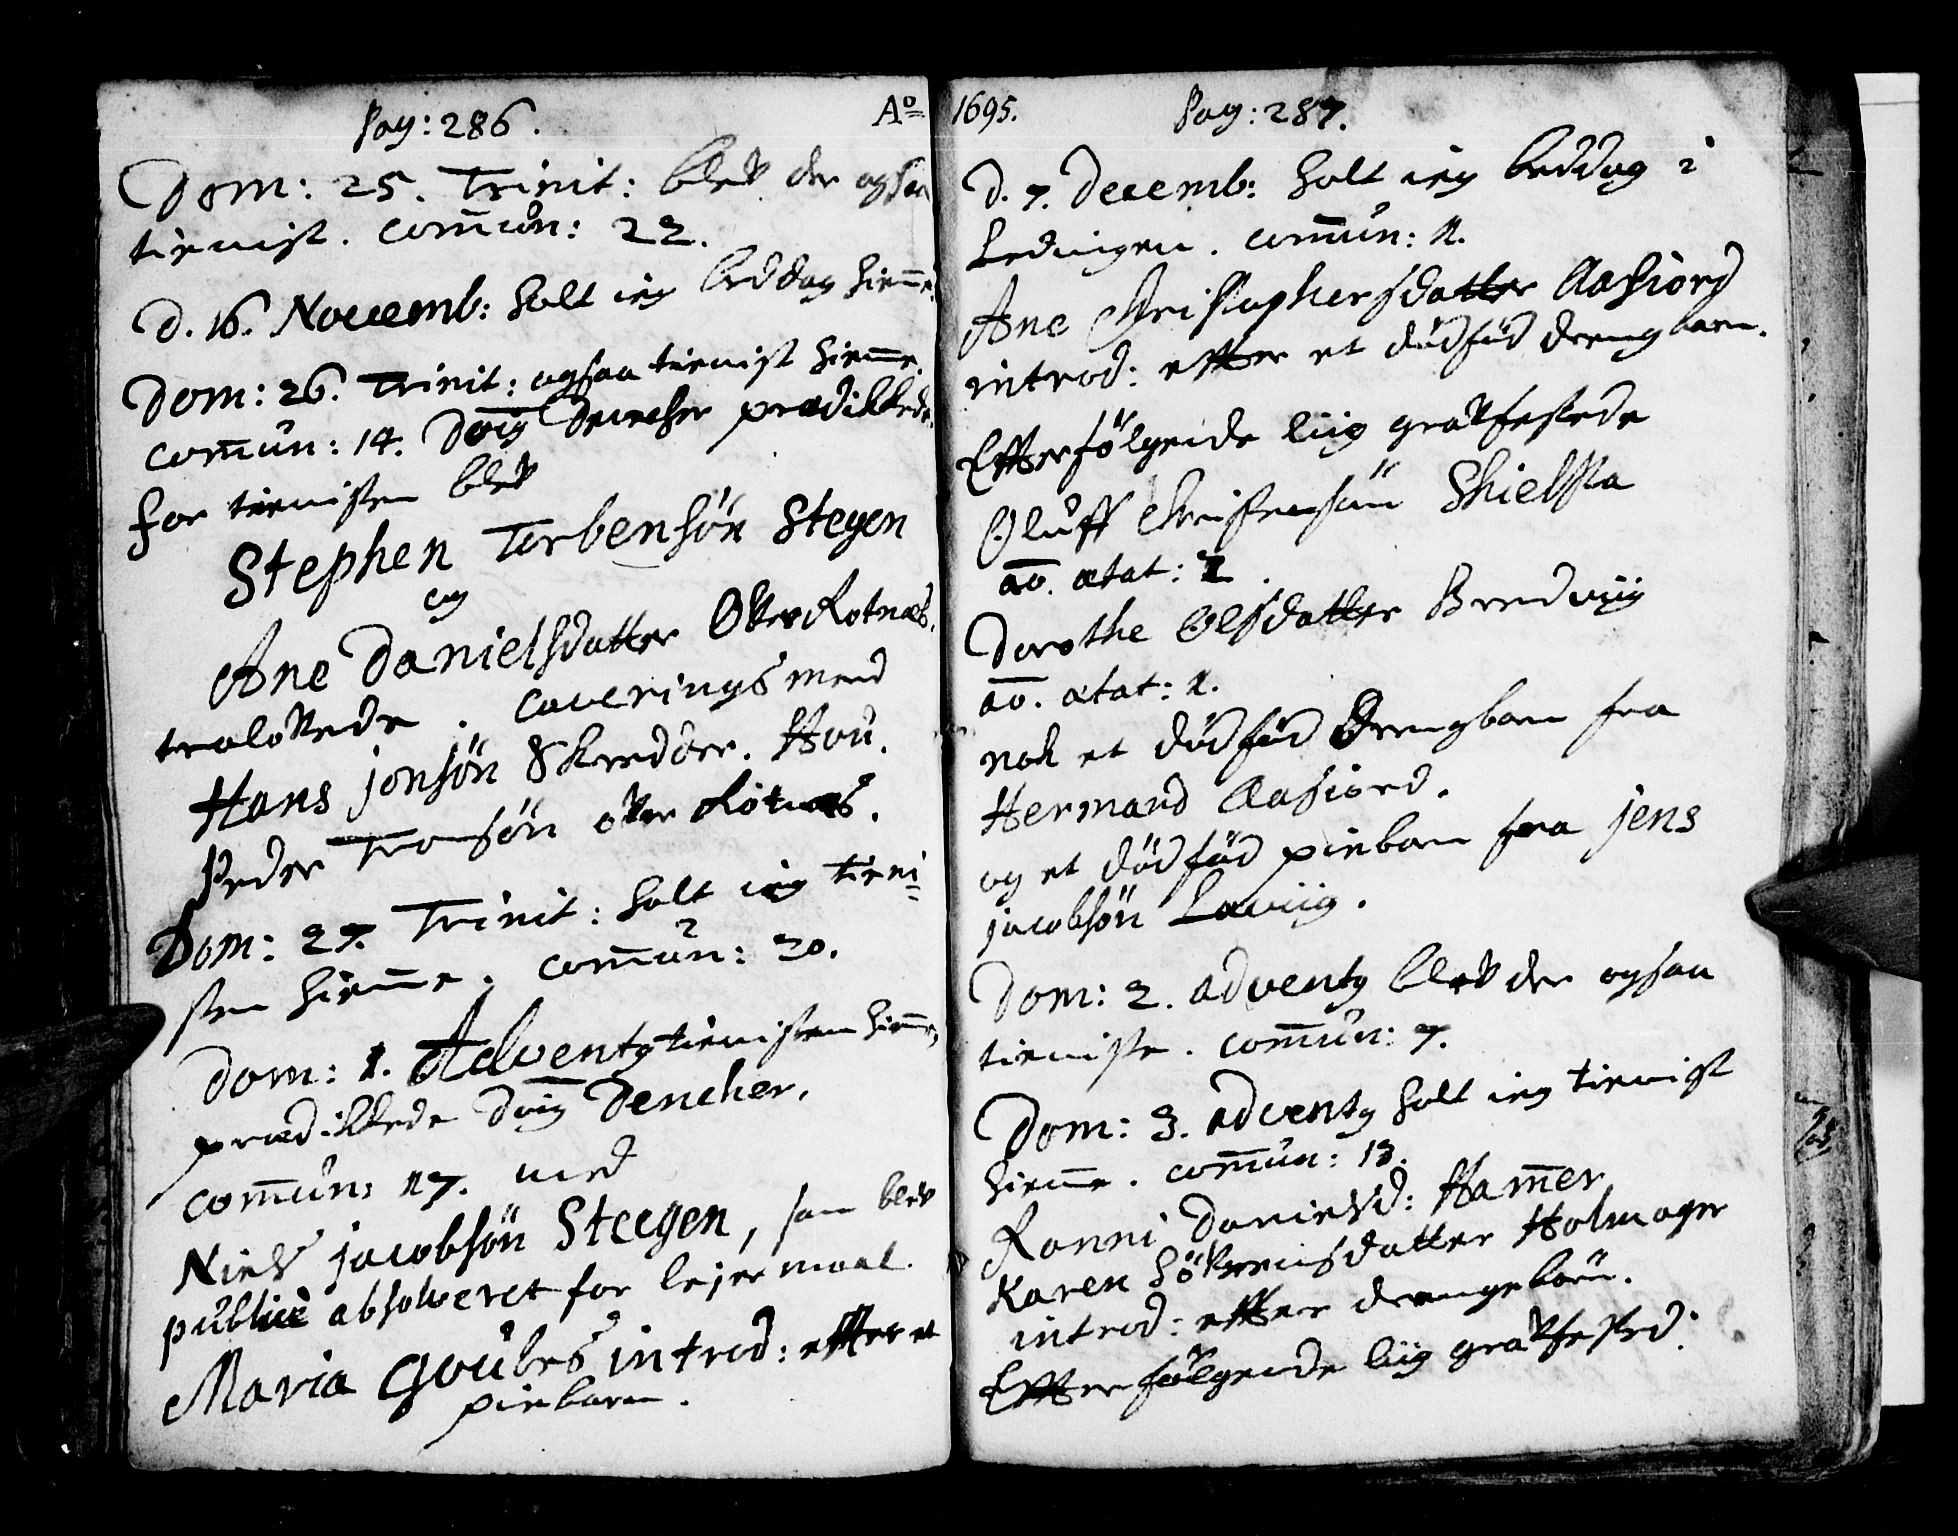 Pag: 286. Ao
Dom: 25. Trinit: blev der ogsaa
tienist. Com̄un: 22.
D. 16. Novemb: holt ieg beddag hiem̄e.
Dom: 26. Trinit: ogsaa tienist hiem̄e.
Com̄un: 14. Dn̄g Dencher prædikkede.
for tienisten blev
Stephen Torbensøn Stegen
og
Ane Danielsdatter Øvre Rotnæs.
trolovede. Caverings mend
Hans Jonsøn Skredder. Hou.
Peder Tronsøn øvre Rotnæs.
Dom: 27. Trinit: holt ieg tieni=
sten hiem̄e. Com̄un: 20.
Dom: 1. Adventg tienisten hiem̄e,
prædikkede Dn̄g Dencher.
Com̄un: 17. med
Niels Jacobsøn Steegen, som blev
publicè absolveret for lejermaal.
Maria Goubes introd: effter et
piebarn.
1695. Pag: 287.
D. 7. Decemb: holt ieg beddag i
Ledingen. Com̄un: 11.
Ane Christophersdatter Aafiord
introd: effter et dødfød drengbarn.
Effterfølgende liig gravfestede
Oluff Christensøn Skielsta
ao. ætat: 1.
Dorothe Olsdatter Bredviig
ao. ætat: 1.
nok et dødfød Drengbarn fra
Hermand Aafiord.
og et dødfød piebarn fra Jens
Jacobsøn Laviig.
Dom: 2. Adventg blev der ogsaa
tieniste. Com̄un: 7.
Dom: 3. Adventg holt ieg tienist
hiem̄e. Com̄un: 13.
Ranni Danielsd: Ham̄er
Karen Søfrensdatter Holmager
introd: effter drengebørn.
Effterfølgende liig gravfested: